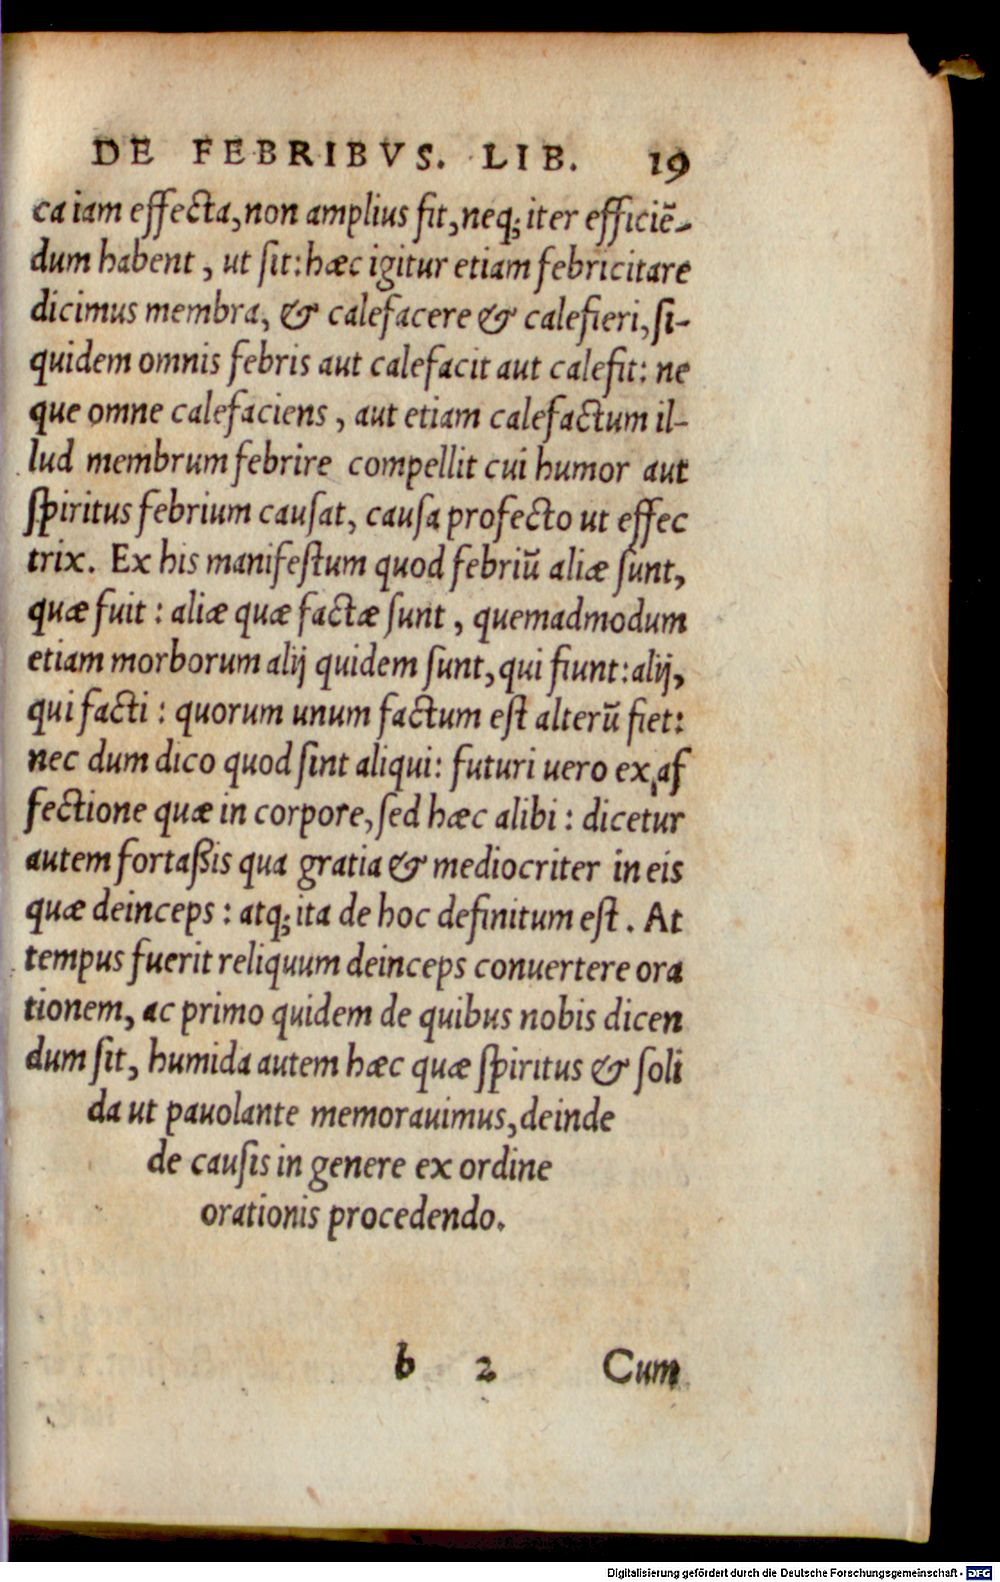 DE FEBRIBVS. LIB. 19
ca iam effecta, non amplius fit, neq; iter efficiē-
dum habent, ut sit: hæc igitur etiam febricitare
dicimus membra, & calefacere & calefieri, si-
quidem omnis febris aut calefacit aut calefit: ne
que omne calefaciens, aut etiam calefactum il-
lud membrum febrire compellit cui humor aut
spiritus febrium causat, causa profecto ut effec
trix. Ex his manifestum quod febriū aliæ sunt,
quæ fuit: aliæ quæ factæ sunt, quemadmodum
etiam morborum alij quidem sunt, qui fiunt: alij,
qui facti: quorum unum factum est alterū fiet:
nec dum dico quod sint aliqui: futuri uero ex af
fectione quæ in corpore, sed hæc alibi: dicetur
autem fortaßis qua gratia & mediocriter in eis
quæ deinceps: atq; ita de hoc definitum est. At
tempus fuerit reliquum deinceps conuertere ora
tionem, ac primo quidem de quibus nobis dicen
dum sit, humida autem hæc quæ spiritus & soli
da ut pauolante memorauimus, deinde
de causis in genere ex ordine
orationis procedendo.
b 2 Cum
Digitalisierung gefördert durch die Deutsche Forschungsgemeinschaft - DFG